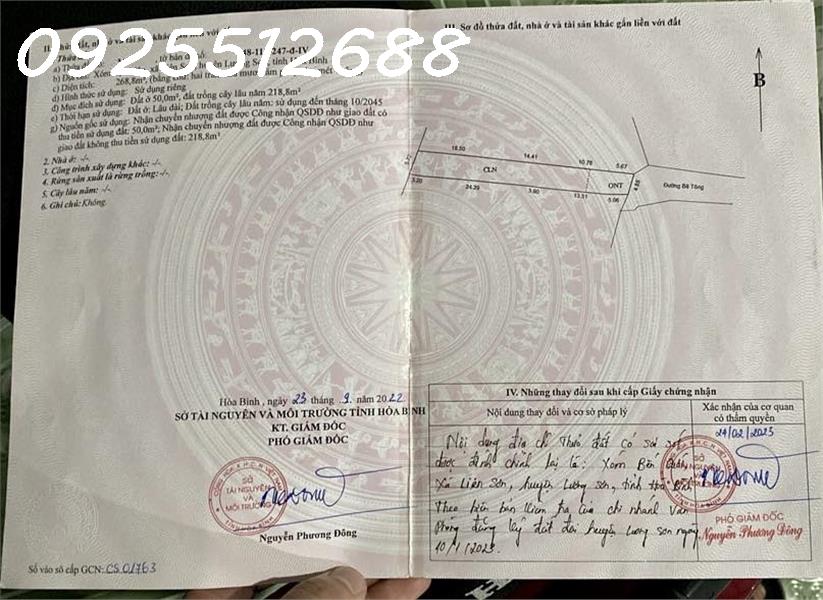 0925512688
II. Thửa đất, nhà ở và tài sản khác
a) Thửa đất
247-d-IV
b) Địa chỉ: Xóm
c) Diện tích: 268,8m²,
d) Hình thức sử dụng: Sử dụng riêng
đ) Mục đích sử dụng: Đất ở 50,0m², đất trồng cây lâu năm 218,8m²
e) Thời hạn sử dụng: Đất ở: Lâu dài; Đất trồng cây lâu năm: sử dụng đến tháng 10/2045
g) Nguồn gốc sử dụng: Nhận chuyển nhượng đất được Công nhận QSDĐ như giao đất có
thu tiền sử dụng đất: 50,0m²; Nhận chuyển nhượng đất được Công nhận QSDĐ như
giao đất không thu tiền sử dụng đất: 218,8m²
2. Nhà ở: -/-
3. Công trình xây dựng khác: -/-
4. Rừng sản xuất là rừng trồng: -/-
5. Cây lâu năm: -/-
6. Ghi chú: Không.
Hòa Bình, ngày 23 tháng 9 năm 2022
SỞ TÀI NGUYÊN VÀ MÔI TRƯỜNG TỈNH HÒA BÌNH
KT. GIÁM ĐỐC
PHÓ GIÁM ĐỐC
SỞ
TÀI NGUYÊN
VÀ
MÔI TRƯỜNG
Nguyễn Phương Đông
Số vào sổ cấp GCN: CS 01763
III. Sơ đồ thửa đất, nhà ở và tài sản khác gắn liền với đất
B
18.50 14.41 10.78 5.67
CLN
ONT
4.88
Đường Bê Tông
3.20 24.29 3.60 13.31 5.06
IV. Những thay đổi sau khi cấp Giấy chứng nhận
Nội dung thay đổi và cơ sở pháp lý
Xác nhận của cơ quan
có thẩm quyền
Nội dung địa chỉ thửa đất có sai sót
được đính chính lại là: Xóm Bến
Xã Liên Sơn, huyện Lương Sơn, tỉnh Hòa Bình
Theo biên bản kiểm tra của chi nhánh Văn
phòng đăng ký đất đai huyện Lương Sơn ngày
10/1/2023.
24/02/2023
PHÓ GIÁM ĐỐC
Nguyễn Phương Đông